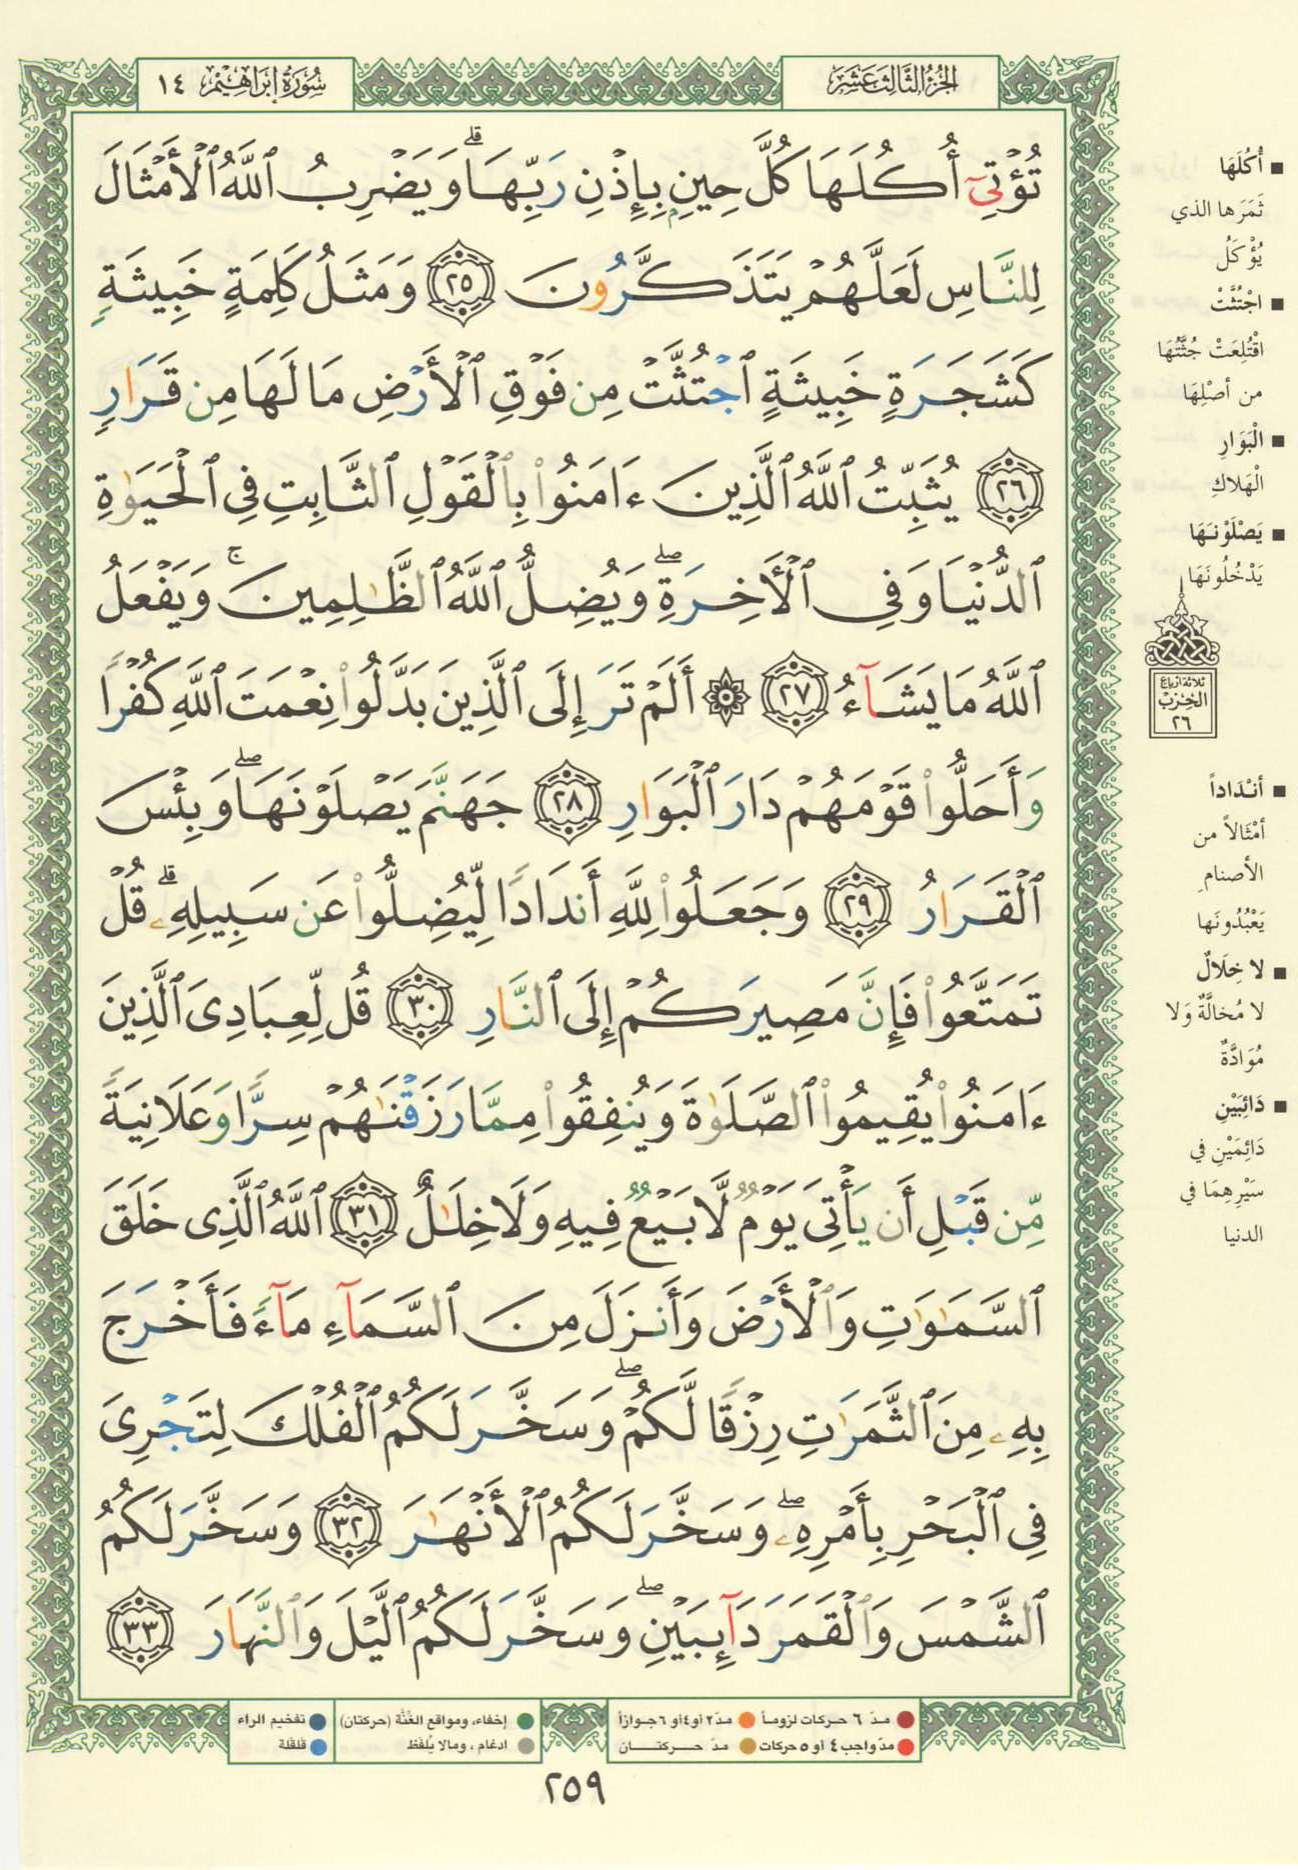 الجُزْءُ الثَّالِثَ عَشَرَ
سُورَةُ إِبْرَاهِيم ١٤
تُؤْتِىٓ أُكُلَهَا كُلَّ حِينٍۭ بِإِذْنِ رَبِّهَا ۗ وَيَضْرِبُ ٱللَّهُ ٱلْأَمْثَالَ
لِلنَّاسِ لَعَلَّهُمْ يَتَذَكَّرُونَ ٢٥ وَمَثَلُ كَلِمَةٍ خَبِيثَةٍ
كَشَجَرَةٍ خَبِيثَةٍ ٱجْتُثَّتْ مِن فَوْقِ ٱلْأَرْضِ مَا لَهَا مِن قَرَارٍ
٢٦ يُثَبِّتُ ٱللَّهُ ٱلَّذِينَ ءَامَنُوا۟ بِٱلْقَوْلِ ٱلثَّابِتِ فِى ٱلْحَيَوٰةِ
ٱلدُّنْيَا وَفِى ٱلْأَخِرَةِ ۖ وَيُضِلُّ ٱللَّهُ ٱلظَّٰلِمِينَ ۚ وَيَفْعَلُ
ٱللَّهُ مَا يَشَآءُ ٢٧ ۞ أَلَمْ تَرَ إِلَى ٱلَّذِينَ بَدَّلُوا۟ نِعْمَتَ ٱللَّهِ كُفْرًا
وَأَحَلُّوا۟ قَوْمَهُمْ دَارَ ٱلْبَوَارِ ٢٨ جَهَنَّمَ يَصْلَوْنَهَا ۖ وَبِئْسَ
ٱلْقَرَارُ ٢٩ وَجَعَلُوا۟ لِلَّهِ أَندَادًا لِّيُضِلُّوا۟ عَن سَبِيلِهِۦ ۗ قُلْ
تَمَتَّعُوا۟ فَإِنَّ مَصِيرَكُمْ إِلَى ٱلنَّارِ ٣٠ قُل لِّعِبَادِىَ ٱلَّذِينَ
ءَامَنُوا۟ يُقِيمُوا۟ ٱلصَّلَوٰةَ وَيُنفِقُوا۟ مِمَّا رَزَقْنَٰهُمْ سِرًّا وَعَلَانِيَةً
مِّن قَبْلِ أَن يَأْتِىَ يَوْمٌ لَّا بَيْعٌ فِيهِ وَلَا خِلَٰلٌ ٣١ ٱللَّهُ ٱلَّذِى خَلَقَ
ٱلسَّمَٰوَٰتِ وَٱلْأَرْضَ وَأَنزَلَ مِنَ ٱلسَّمَآءِ مَآءً فَأَخْرَجَ
بِهِۦ مِنَ ٱلثَّمَرَٰتِ رِزْقًا لَّكُمْ ۖ وَسَخَّرَ لَكُمُ ٱلْفُلْكَ لِتَجْرِىَ
فِى ٱلْبَحْرِ بِأَمْرِهِۦ ۖ وَسَخَّرَ لَكُمُ ٱلْأَنْهَٰرَ ٣٢ وَسَخَّرَ لَكُمُ
ٱلشَّمْسَ وَٱلْقَمَرَ دَآئِبَيْنِ ۖ وَسَخَّرَ لَكُمُ ٱلَّيْلَ وَٱلنَّهَارَ ٣٣
■ أُكُلَهَا
ثَمَرَها الذي
يُؤْكَلُ
■ اجْتُثَّتْ
اقْتُلِعَتْ جُثَّتُهَا
من أصْلِهَا
■ الْبَوَارِ
الْهَلاكِ
■ يَصْلَوْنَهَا
يَدْخُلُونَهَا
ثلاثة أرباع
الحِزْب
٢٦
■ أنْدَاداً
أمْثَالاً من
الأصنامِ
يَعْبُدُونَها
■ لا خِلَالٌ
لا مُخالَّةٌ وَلا
مُوَادَّةٌ
■ دَائِبَيْنِ
دَائِمَيْنِ في
سَيْرِهِمَا في
الدنيا
مدّ ٦ حركات لزوماً
مدّ٢ أو٤ أو ٦ جوازاً
إخفاء، ومواقع الغُنَّة (حركتان)
تفخيم الراء
مدّ واجب ٤ أو ٥ حركات
مدّ حركتان
ادغام ، ومالا يُلفَظ
قلقلة
٢٥٩